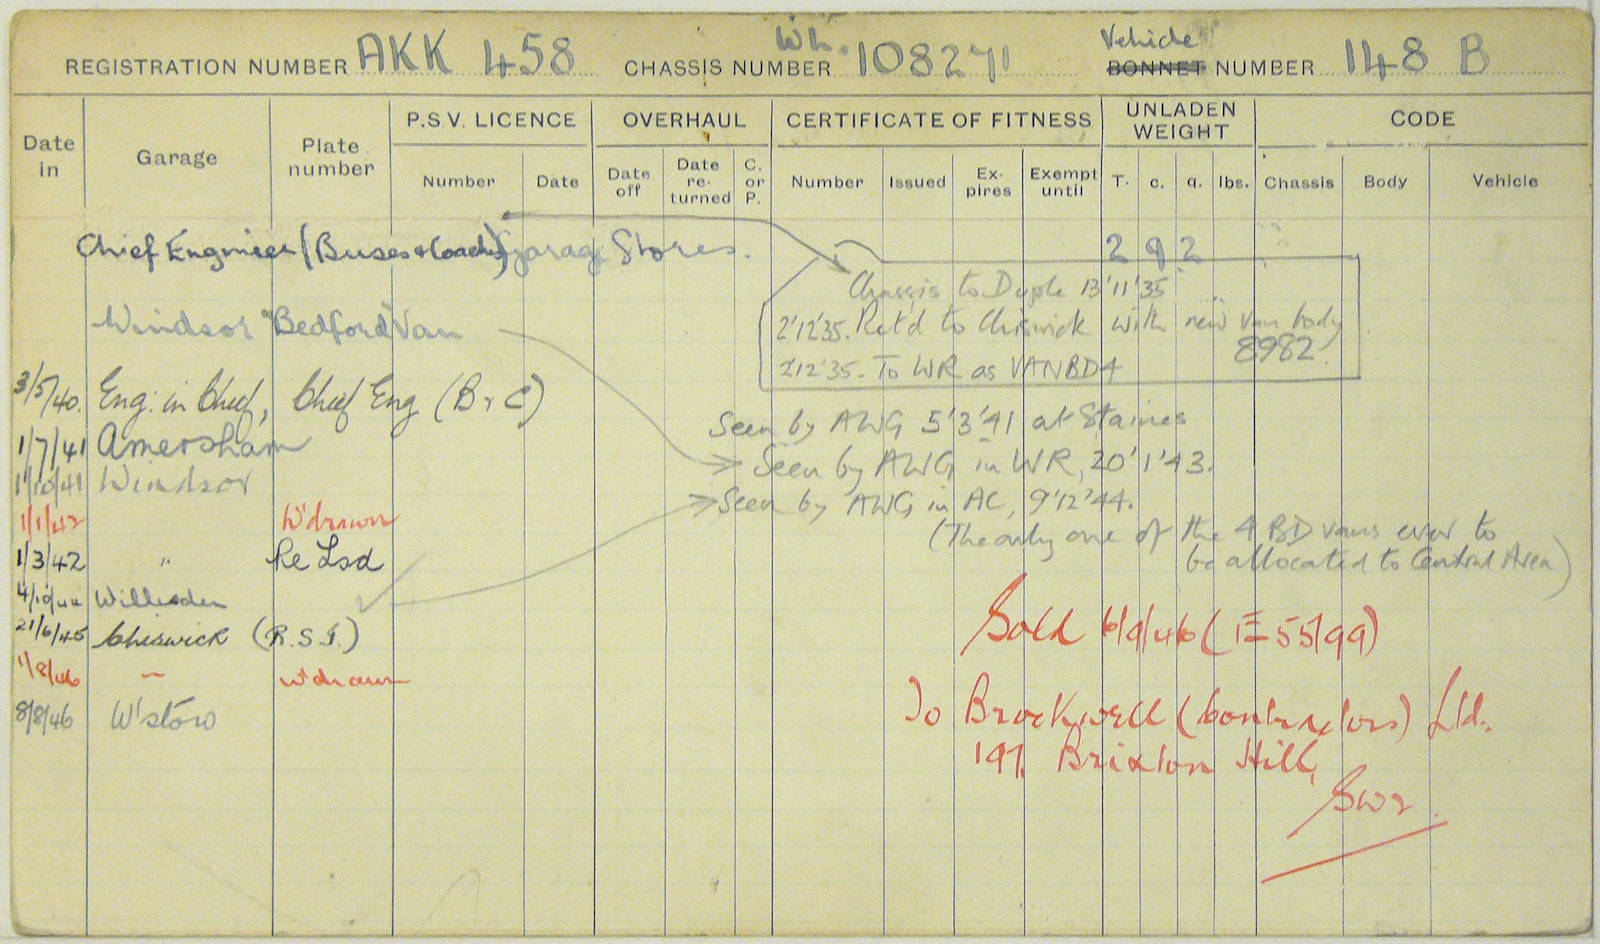 REGISTRATION NUMBER AKK 458 CHASSIS NUMBER Wh. 108271 Vehicle BONNET NUMBER 148 B
Date in Garage Plate number P.S.V. LICENCE OVERHAUL CERTIFICATE OF FITNESS UNLADEN WEIGHT CODE
Number Date Date off Date re-turned C. or P. Number Issued Ex-pires Exempt until T. c. q. lbs. Chassis Body Vehicle
Chief Engineer (Buses & Coaches) Garage Stores. 2 9 2
Chassis to Duple 13'11'35
Windsor "Bedford" Van 2'12'35. Ret'd to Chiswick with new van body
8982.
2'12'35. To WR as VANBD4
3/5/40. Eng. in Chief, Chief Eng (B & C)
Seen by AWG 5'3'41 at Staines
1/7/41 Amersham
Seen by AWG in WR, 20'1'43.
1/10/41 Windsor
Seen by AWG in AC, 9'12'44.
1/1/42 W'drawn
(The only one of the 4 BD vans ever to
be allocated to Central Area)
1/3/42 " Re Lsd
4/10/44 Willesden
21/6/45 Chiswick (R.S.F.)
Sold 6/9/46 (IE 55/99)
1/8/46 " W'drawn
8/8/46 W'stow
To Brockwell (Contractors) Ltd.
197. Brixton Hill,
SW2.